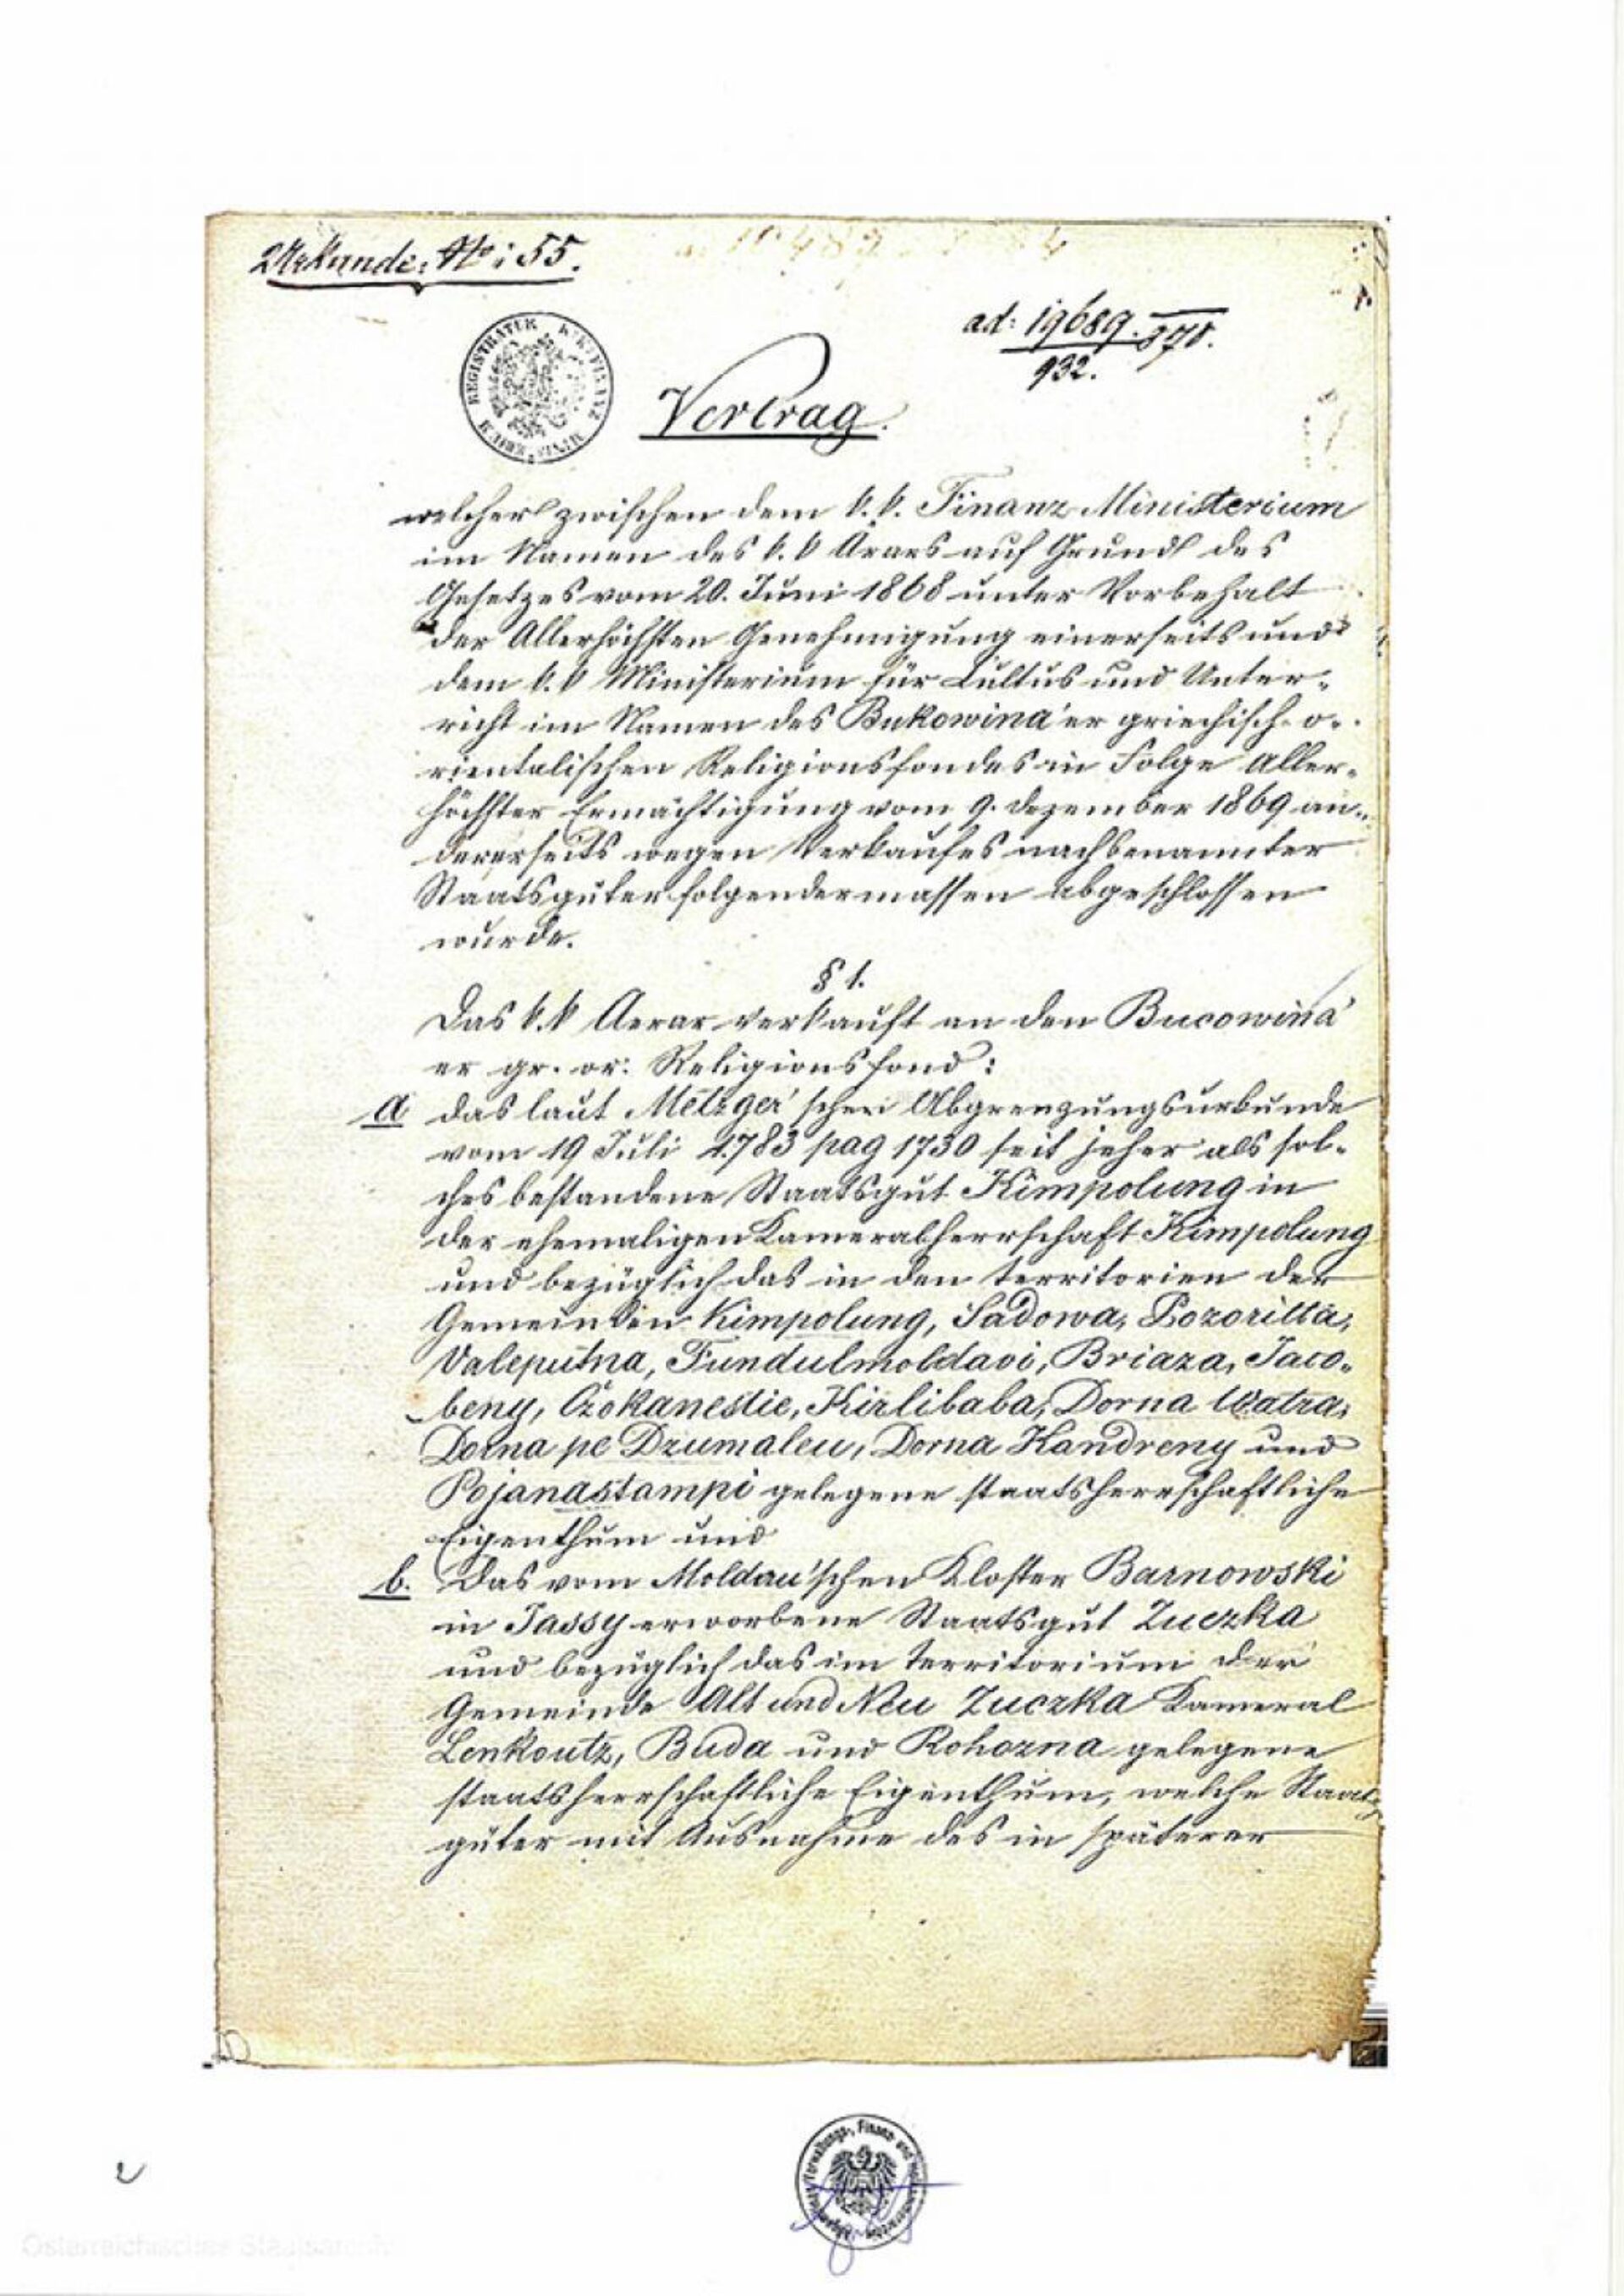 Urkunde: No: 55.
ad: 19689.
932.
REGISTRATUR K.K. FINANZ
Vertrag.
welcher zwischen dem k. k. Finanz Ministerium
im Namen des k. k Ärars auf Grund des
Gesetzes vom 20. Juni 1868 unter Vorbehalt
der Allerhöchsten Genehmigung einerseits und
dem k. k Ministerium für Cultus und Unter-
richt im Namen des Bukowina'er griechisch-o-
rientalischen Religionsfondes in Folge Aller-
höchster Ermächtigung vom 9. Dezember 1869 an-
dererseits wegen Verkaufes nachbenannter
Staatsgüter folgendermassen abgeschlossen
wurde.
§ 1.
Das k. k Aerar verkauft an den Bucowina'
er gr. or: Religionsfond:
a das laut Metzger'schen Abgrenzungsurkunde
vom 19 Juli 1783 pag 1730 seit jeher als sol-
ches bestandene Staatsgut Kimpolung in
der ehemaligen Kameralherrschaft Kimpolung
und bezüglich das in den Territorien der
Gemeinden Kimpolung, Sadowa, Pozoritta,
Valeputna, Fundulmoldavi, Briaza, Jaco-
beny, Czokanestie, Kirlibaba, Dorna Watra,
Dorna pe Dzumaleu, Dorna Kandreny und
Pojanastampi gelegene staatsherrschaftliche
Eigenthum und
b. Das vom Moldau'schen Kloster Barnowski
in Jassy erworbene Staatsgut Zuczka
und bezüglich das im Territorium der
Gemeinde Alt und Neu Zuczka Kameral
Lenkoutz, Buda und Rohozna gelegene
staatsherrschaftliche Eigenthum, welche Staats
güter mit Ausnahme des in späterer
Verwaltungs-, Finanz- und
2
Österreichisches Staatsarchiv